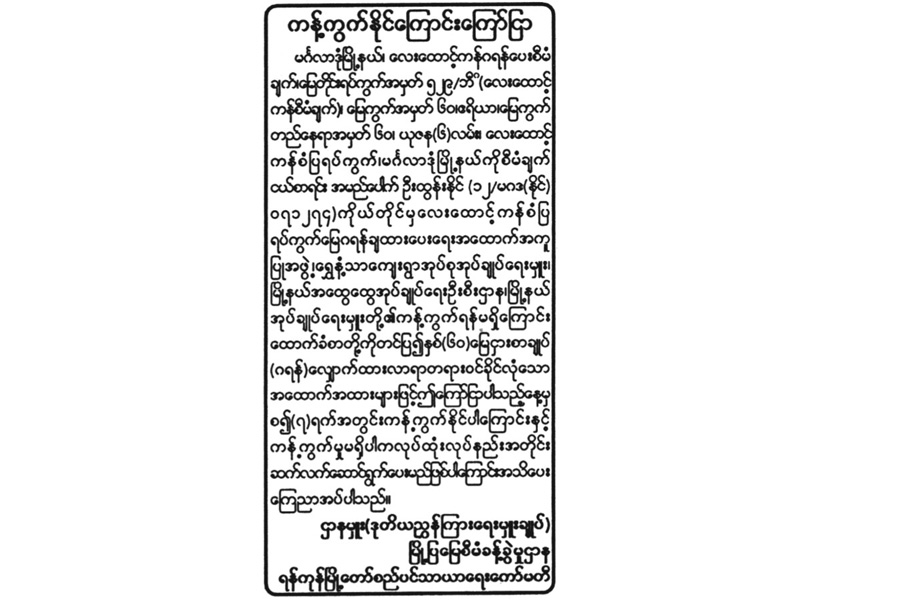 ကန့်ကွက်နိုင်ကြောင်းကြော်ငြာ
မင်္ဂလာဒုံမြို့နယ်၊ လေးထောင့်ကန်ဂရန်ပေးစီမံ
ချက်၊မြေတိုင်းရပ်ကွက်အမှတ် ၅၂၉/ဘီ (လေးထောင့်
ကန်စီမံချက်)၊ မြေကွက်အမှတ် ၆၀၊ဧရိယာ၊မြေကွက်
တည်နေရာအမှတ် ၆၀၊ ယုဇန(၆)လမ်း၊ လေးထောင့်
ကန်စံပြရပ်ကွက်၊မင်္ဂလာဒုံမြို့နယ်ကိုစီမံချက်
ငယ်စာရင်း အမည်ပေါက် ဦးထွန်းနိုင် (၁၂/မဂဒ(နိုင်)
၀၇၁၂၇၄)ကိုယ်တိုင်မှလေးထောင့်ကန်စံပြ
ရပ်ကွက်မြေဂရန်ချထားပေးရေးအထောက်အကူ
ပြုအဖွဲ့၊ရွှေနံ့သာကျေးရွာအုပ်စုအုပ်ချုပ်ရေးမှူး၊
မြို့နယ်အထွေထွေအုပ်ချုပ်ရေးဦးစီးဌာန၊မြို့နယ်
အုပ်ချုပ်ရေးမှူးတို့၏ကန့်ကွက်ရန်မရှိကြောင်း
ထောက်ခံစာတို့ကိုတင်ပြ၍နှစ်(၆၀)မြေငှားစာချုပ်
(ဂရန်)လျှောက်ထားလာရာတရားဝင်ခိုင်လုံသော
အထောက်အထားများဖြင့်ဤကြော်ငြာပါသည့်နေ့မှ
စ၍(၇)ရက်အတွင်းကန့်ကွက်နိုင်ပါကြောင်းနှင့်
ကန့်ကွက်မှုမရှိပါကလုပ်ထုံးလုပ်နည်းအတိုင်း
ဆက်လက်ဆောင်ရွက်ပေးမည်ဖြစ်ပါကြောင်းအသိပေး
ကြေညာအပ်ပါသည်။
ဌာနမှူး(ဒုတိယညွှန်ကြားရေးမှူးချုပ်)
မြို့ပြမြေစီမံခန့်ခွဲမှုဌာန
ရန်ကုန်မြို့တော်စည်ပင်သာယာရေးကော်မတီ